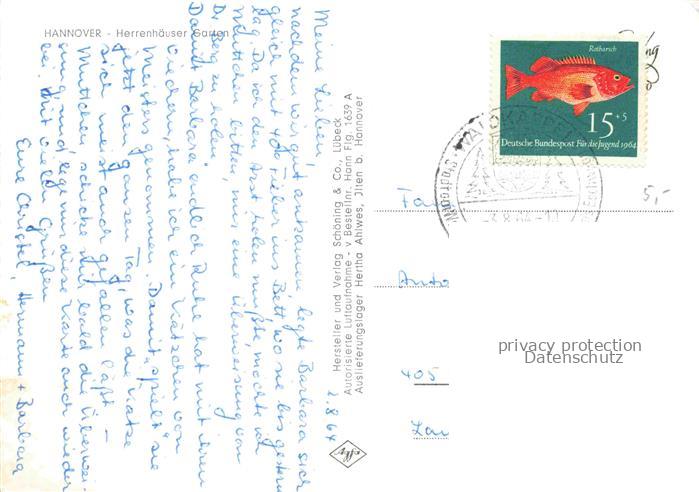 HANNOVER - Herrenhäuser Garten
2.8.64
Meine Lieben,
nachdem wir gut ankamen, legte Barbara sich
gleich mit 40° Fieber ins Bett, wo sie bis gestern
lag. Da vor der Arzt holen mußte, möchte ich
Muttchen bitten, mir eine Überweisung von
Dr. Berg zu holen.
Damit Barbara endlich Ruhe hat mit ihren
wieder, habe ich ein Kätzchen von
Meisters genommen. Damit spielt sie
jetzt den ganzen Tag, was die Katze
sich meist auch gefallen läßt –
Muttchen, schicke mir bald die Überwei-
sung, und leg mir diese Karte auch wieder
bei. Mit vielen Grüßen
Eure Christel, Hermann + Barbara
Hersteller und Verlag Schöning & Co., Lübeck
Autorisierte Luftaufnahme - v. Bestellnr. Hann Flg. 1639 A
Auslieferungslager Hertha Ahlwes, Ilten b. Hannover
Rotbarsch
15+5
Deutsche Bundespost Für die Jugend 1964
WALDKAPPEL
-3.8.64-10
5,-
Fa
Auto
405
privacy protection
Datenschutz